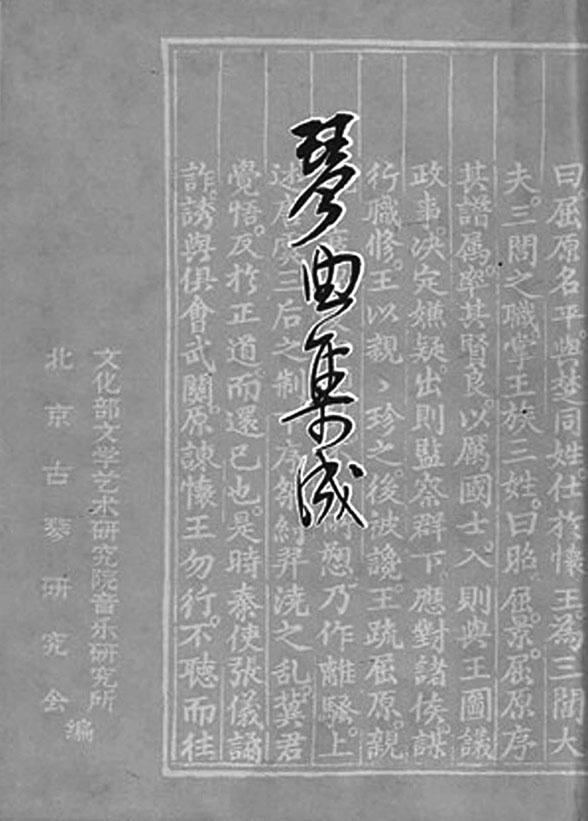 琴曲集成
曰屈原名平與楚同姓仕於懷王為三閭大
夫。三閭之職掌王族三姓。曰昭。屈。景。屈原序
其譜属。率其賢良。以厲國士。入則與王圖議
政事。决定嫌疑。出則監察群下。應對諸侯。謀
行職修。王以親〻珍之。後被讒。王疏屈原。親
愁乃作離騷。上
三后之制下序桀紂羿澆之乱。冀君
覺悟。反於正道。而還已也。是時秦使張儀譎
詐誘與俱會武關。原諫懷王勿行。不聽而往
文化部文学艺术研究院音乐研究所
北京古琴研究会
编